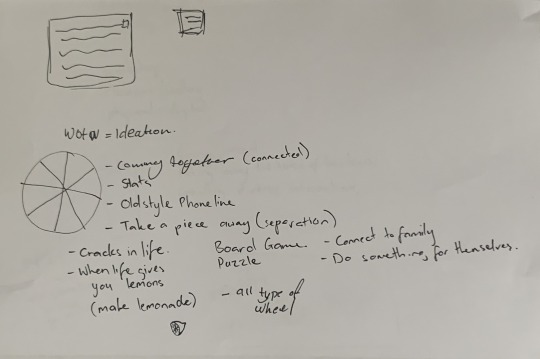 WOTW = Ideation.
- Coming together (connected)
- Stats
- Oldstyle Phoneline
- Take a piece away (separation)
- Cracks in life.
- When life gives
you lemons
(make lemonade)
Board Game.
Puzzle
- all type of
wheel
- Connect to family
- Do something for themselves.